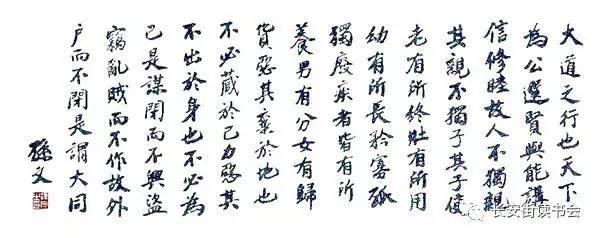 大道之行也天下
為公選賢與能講
信修睦故人不獨親
其親不獨子其子使
老有所終壯有所用
幼有所長矜寡孤
獨廢疾者皆有所
養男有分女有歸
貨惡其棄於地也
不必藏於己力惡其
不出於身也不必為
己是謀閉而不興盜
竊亂賊而不作故外
戶而不閉是謂大同
孫文
长安街读书会